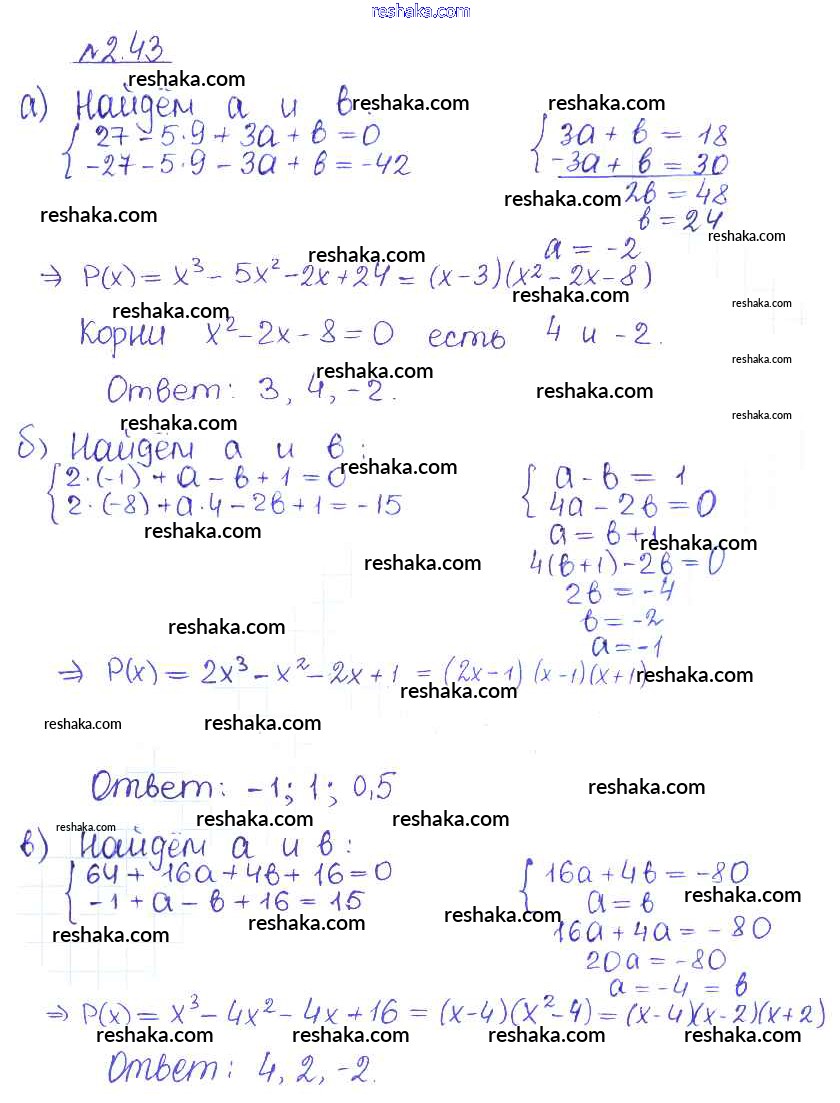 reshaka.com
№2.43
reshaka.com
а) Найдём a и b: reshaka.com reshaka.com
{ 27 - 5·9 + 3a + b = 0
-27 - 5·9 - 3a + b = -42
{ 3a + b = 18
-3a + b = 30
reshaka.com
2b = 48
reshaka.com
b = 24
reshaka.com
a = -2
reshaka.com
⇒ P(x) = x³ - 5x² - 2x + 24 = (x-3)(x² - 2x - 8)
reshaka.com
reshaka.com reshaka.com
Корни x² - 2x - 8 = 0 есть 4 и -2.
reshaka.com
reshaka.com
Ответ: 3, 4, -2.
reshaka.com
reshaka.com
reshaka.com
б) Найдём a и b:
reshaka.com
{ 2·(-1) + a - b + 1 = 0
2·(-8) + a·4 - 2b + 1 = -15
{ a - b = 1
4a - 2b = 0
reshaka.com
a = b + 1
reshaka.com
reshaka.com
4(b+1) - 2b = 0
2b = -4
b = -2
reshaka.com
a = -1
⇒ P(x) = 2x³ - x² - 2x + 1 = (2x-1)(x-1)(x+1)
reshaka.com
reshaka.com
reshaka.com reshaka.com
Ответ: -1; 1; 0,5
reshaka.com
reshaka.com reshaka.com
reshaka.com
в) Найдём a и b:
{ 64 + 16a + 4b + 16 = 0
-1 + a - b + 16 = 15
{ 16a + 4b = -80
a = b
reshaka.com
reshaka.com
reshaka.com
reshaka.com
16a + 4a = -80
20a = -80
a = -4 = b
⇒ P(x) = x³ - 4x² - 4x + 16 = (x-4)(x²-4) = (x-4)(x-2)(x+2)
reshaka.com reshaka.com reshaka.com reshaka.com
Ответ: 4, 2, -2.